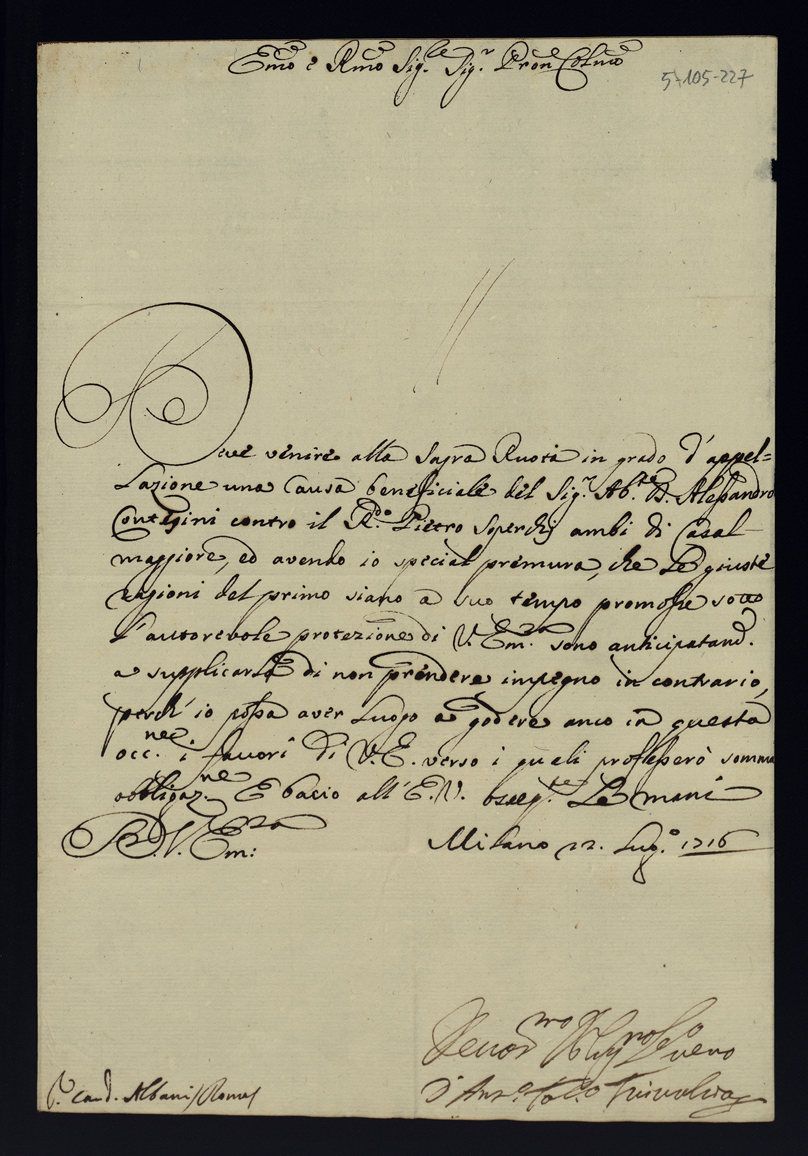 Emo e Rmo Sig.re Sig.r Pron Colmo
5-105-227
Deve venire alla Sagra Ruota in grado d'appel=
lazione una Causa beneficiale del Sig.r Ab.te D. Alessandro
Contesini contro il R.do Pietro Soperchj ambi di Casal
maggiore, ed avendo io special premura, che Le giuste
ragioni del primo siano a suo tempo promosse sotto
l'autorevole protezione di V. Em.za sono anticipatam.
a supplicarLa di non prendere impegno in contrario,
perch' io possa aver Luogo a godere anco in questa
occ.nee i favori di V.E. verso i quali professerò somma
obbligaz.ne E bacio all'E.V. osseq.te Le mani
D.V. Em:za
Milano 22. Lug.o 1716
Devot.mo Obblig.mo Servo
D'Ant.o Trivulzio
S.r Card. Albani / Roma /